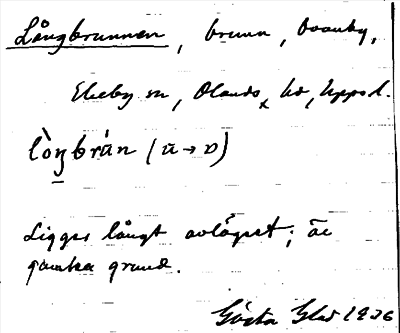 Långbrunnen, brunn, Besinby,
Ekeby sn, Olands hd, Upps. l.
lòŋbrùn (ù→ʋ)
Ligger långt avlägset; är
ganska grund.
Gösta Glad 1936